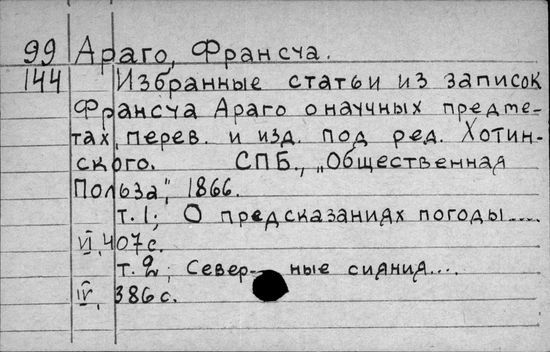 99 Араго, Франсча.
144 Избранные статьи из записок
Франсча Араго о научных предме-
тах, перев. и изд. под ред. Хотин-
ского. СПБ., „Общественная
Польза", 1866.
т. 1; О предсказаниях погоды.....
VI, 407с.
т. 2; Север- ные сияния....
IV, 386с.